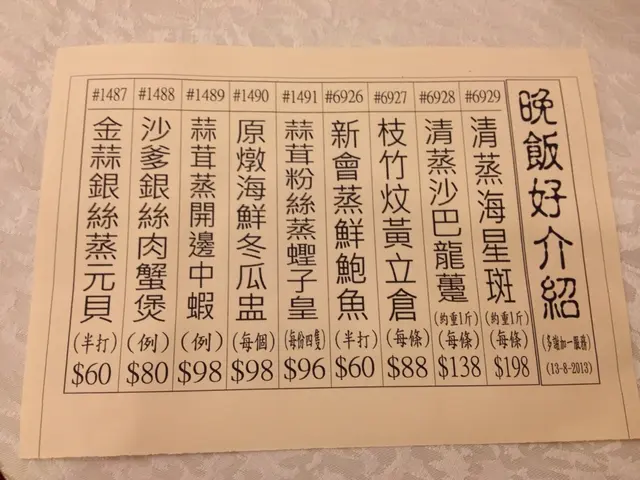 晚飯好介紹
(多謝加一服務)
(13-8-2013)
#6929
清蒸海星斑
(約重1斤)
(每條)
$198
#6928
清蒸沙巴龍躉
(約重1斤)
(每條)
$138
#6927
枝竹炆黃立倉
(每條)
$88
#6926
新會蒸鮮鮑魚
(半打)
$60
#1491
蒜茸粉絲蒸蟶子皇
(每份四隻)
$96
#1490
原燉海鮮冬瓜盅
(每個)
$98
#1489
蒜茸蒸開邊中蝦
(例)
$98
#1488
沙爹銀絲肉蟹煲
(例)
$80
#1487
金蒜銀絲蒸元貝
(半打)
$60